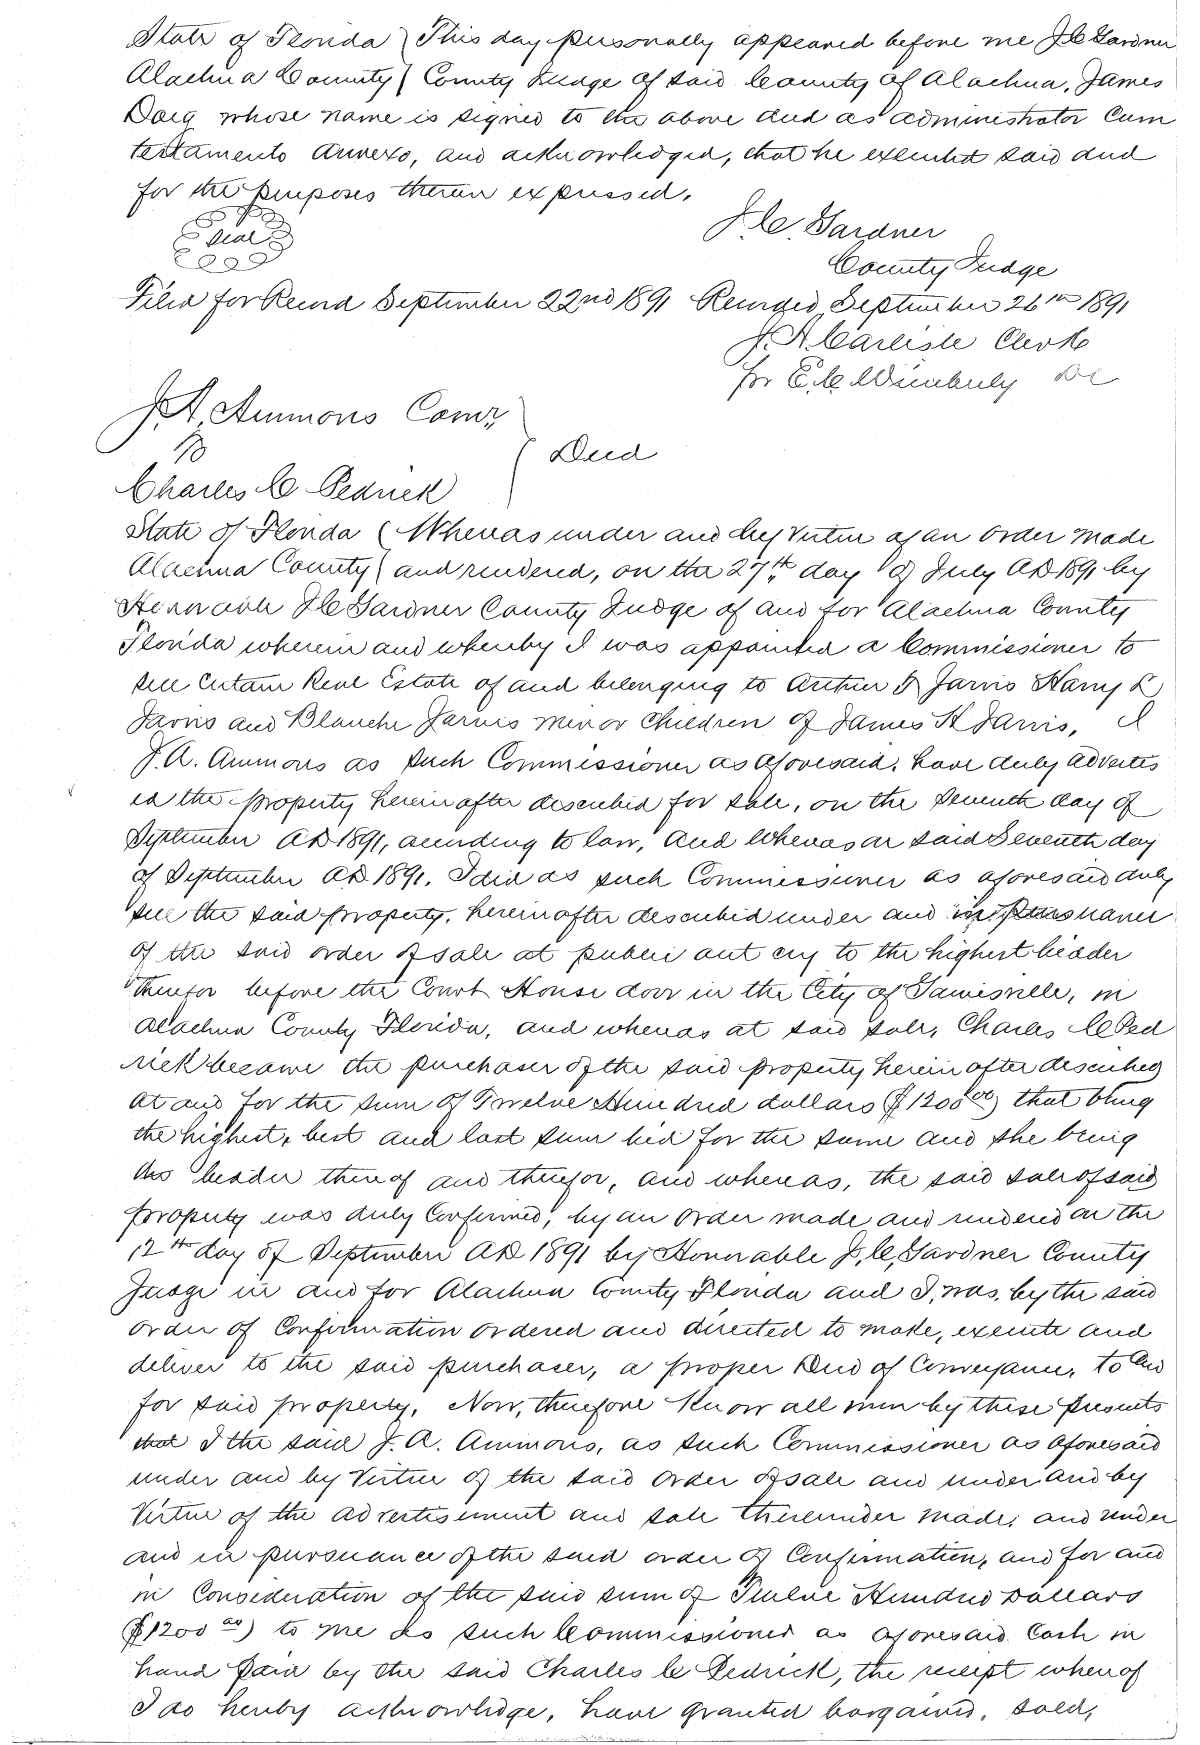 State of Florida } This day personally appeared before me J.C. Gardner
Alachua County } County Judge of said County of Alachua, James
Doig whose name is signed to the above deed as administrator Cum
testamento annexo, and acknowledged, that he executed said deed
for the purposes therein expressed.
Seal
J.C. Gardner
County Judge
Filed for Record September 22nd 1891 Recorded September 26th 1891
J.A. Carlisle Clerk
for E.C. Wimberly DC
J.A. Ammons Comr,
To
} Deed
Charles C Pedrick
State of Florida } Whereas under and by Virtue of an order made
Alachua County } and rendered, on the 27th day of July AD 1891 by
Honorable J C Gardner County Judge of and for Alachua County
Florida wherein and whereby I was appointed a Commissioner to
sell certain Real Estate of and belonging to Arthur Jarvis Harry L
Jarvis and Blanche Jarvis minor Children of James H Jarvis, I
J.A. Ammons as such Commissioner as aforesaid, have duly advertis
ed the property herein after described for sale, on the seventh day of
September AD 1891, according to law, And Whereas on said Seventh day
of September AD 1891, I did as such Commissioner as aforesaid duly
sell the said property, herein after described under and in pursuance
of the said order of sale at public out cry to the highest bidder
therefor before the Court House door in the City of Gainesville, in
Alachua County Florida, and whereas at said sale, Charles C Ped
rick became the purchaser of the said property herein after described
at and for the sum of Twelve Hundred dollars ($1200 00) that being
the highest, best and last sum bid for the same and she being
the bidder thereof and therefor, and whereas, the said sale of said
property was duly Confirmed, by an order made and rendered on the
12th day of September AD 1891 by Honorable J.C. Gardner County
Judge in and for Alachua County Florida and I, was, by the said
order of Confirmation ordered and directed to make, execute and
deliver to the said purchaser, a proper Deed of Conveyance, to and
for said property, Now, therefore Know all men by these presents
that I the said J.A. Ammons, as such Commissioner as aforesaid
under and by Virtue of the said order of sale and under and by
Virtue of the advertisement and sale thereunder made, and under
and in pursuance of the said order of Confirmation, and for and
in Consideration of the said sum of Twelve Hundred Dollars
($1200 00) to me as such Commissioner as aforesaid Cash in
hand paid by the said Charles C Pedrick, the receipt whereof
I do hereby acknowledge, have granted bargained, sold,